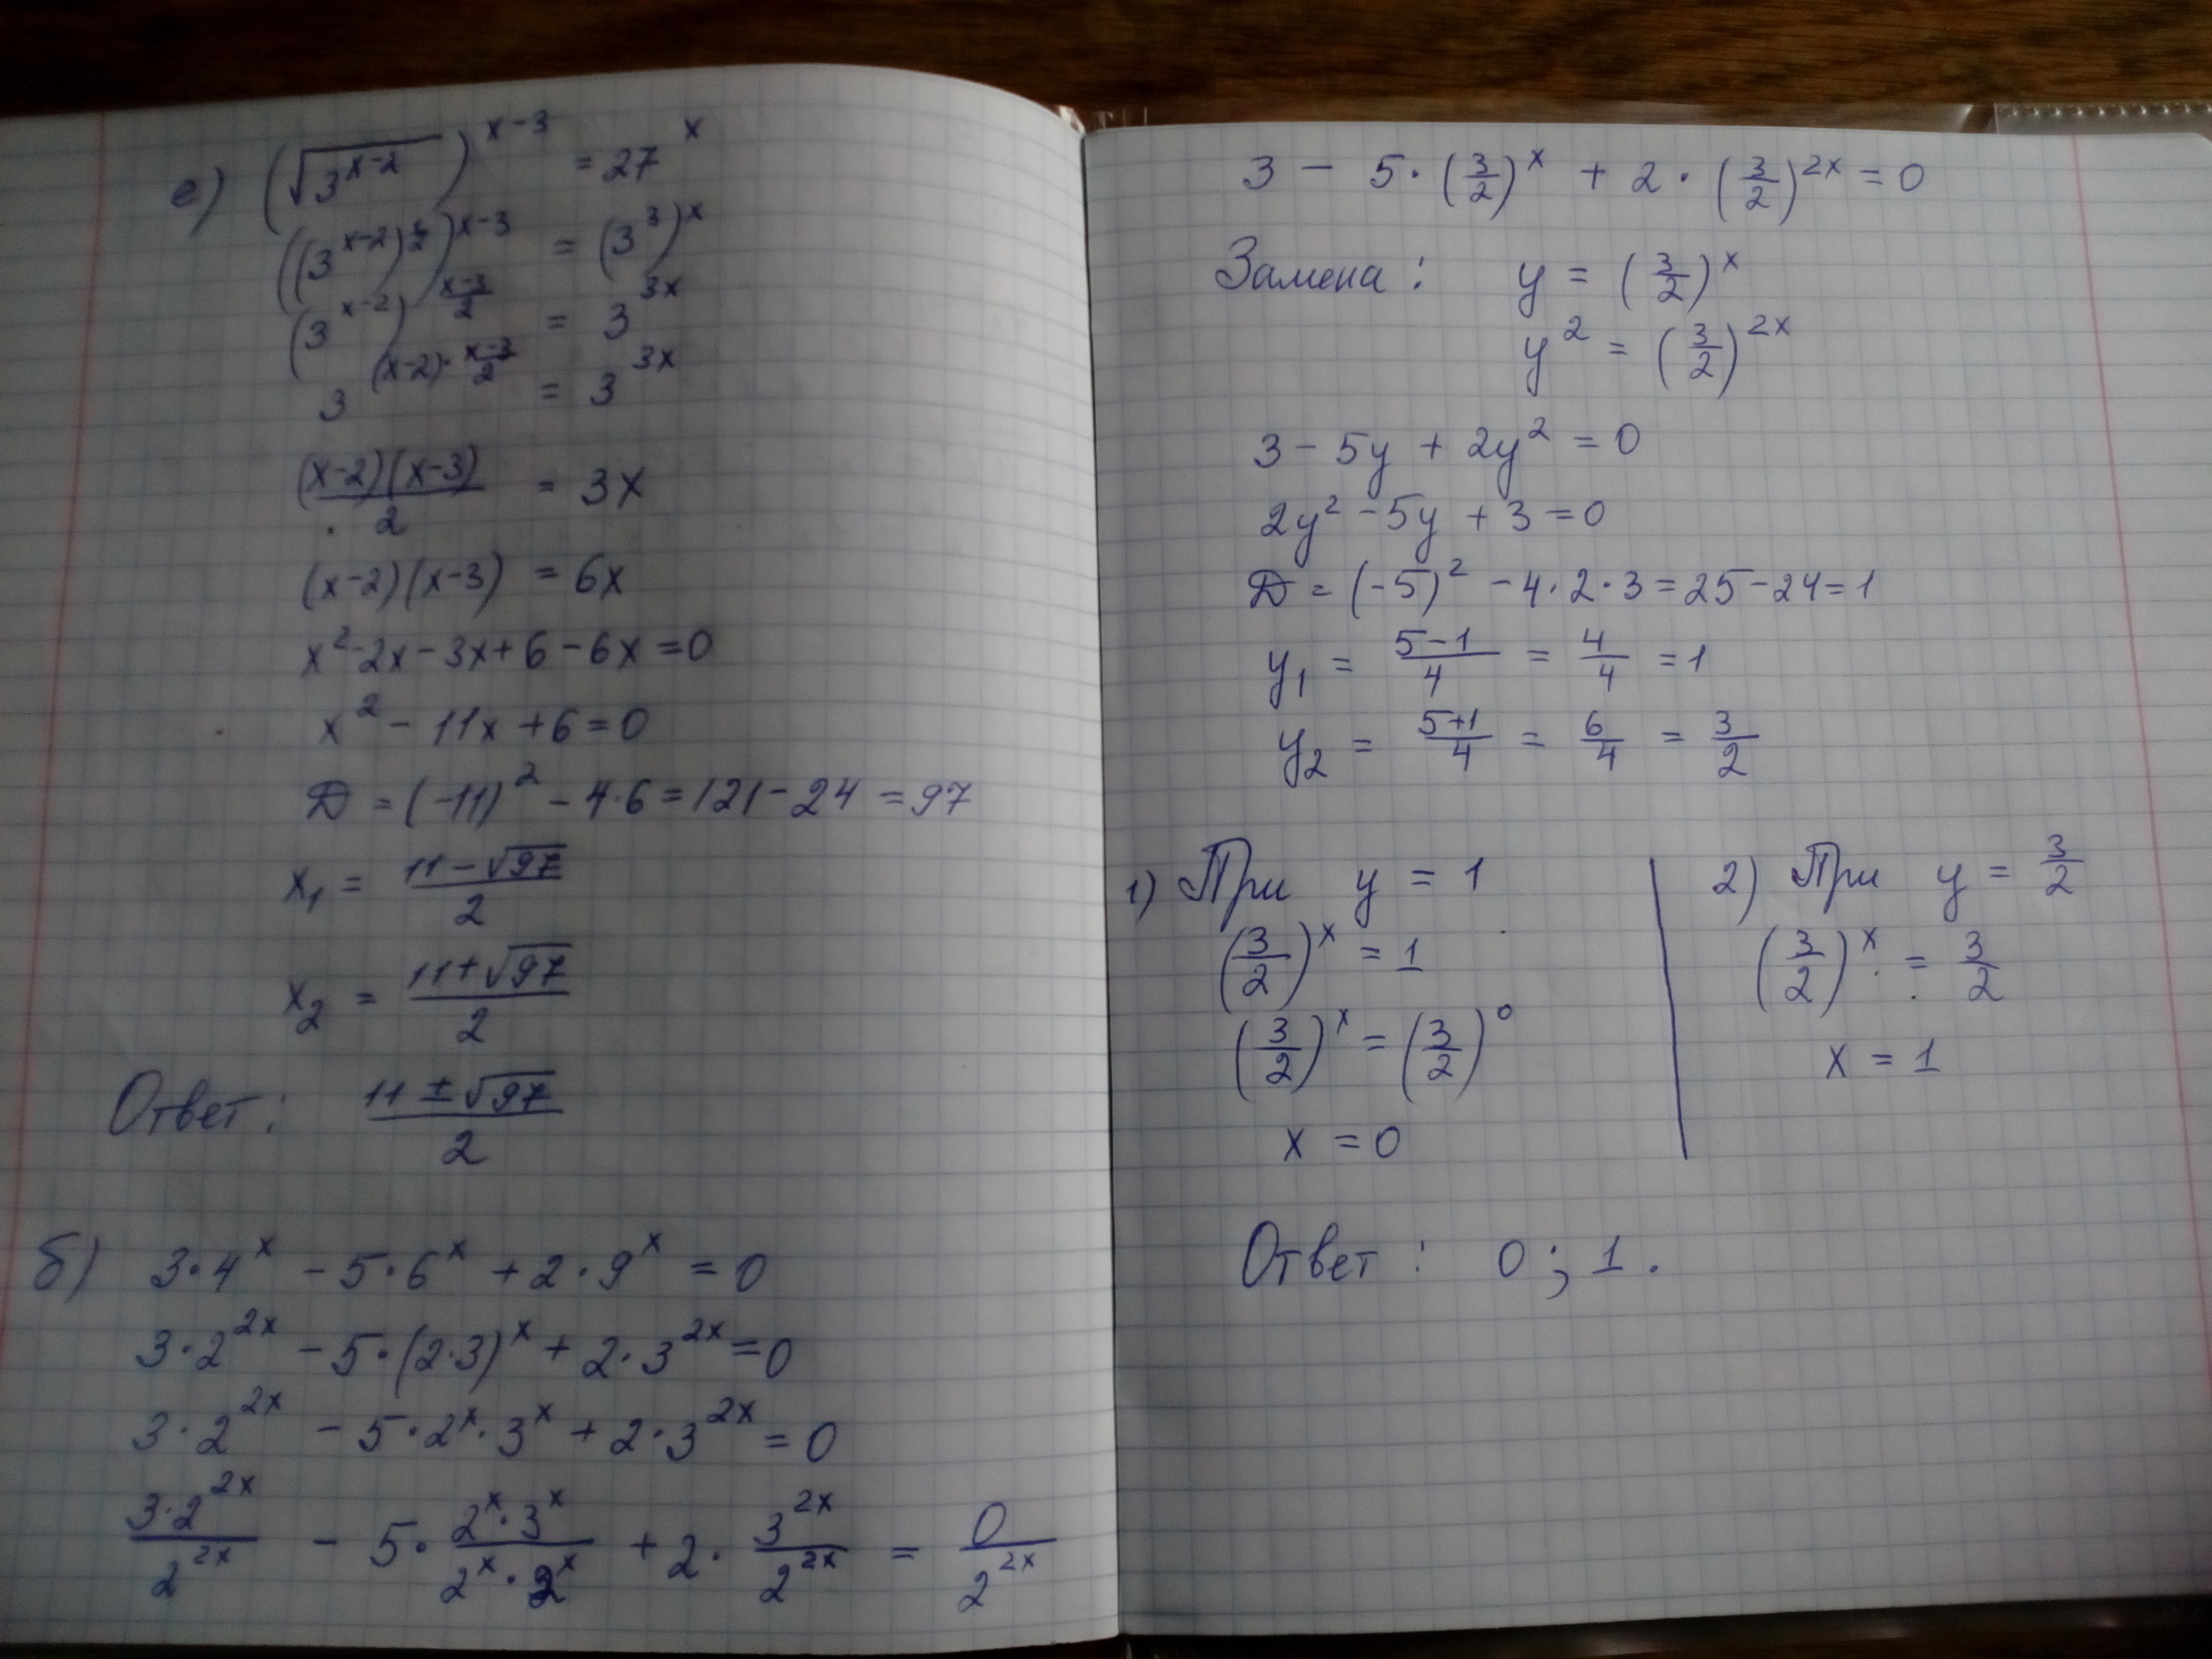 е) (√3^(x-2))^(x-3) = 27^x
((3^(x-2))^(1/2))^(x-3) = (3^3)^x
(3^(x-2))^((x-3)/2) = 3^(3x)
3^((x-2)·(x-3)/2) = 3^(3x)
(x-2)(x-3)/2 = 3x
(x-2)(x-3) = 6x
x²-2x-3x+6-6x=0
x² - 11x + 6 = 0
D = (-11)² - 4·6 = 121 - 24 = 97
x₁ = (11-√97)/2
x₂ = (11+√97)/2
Ответ: (11±√97)/2
б) 3·4^x - 5·6^x + 2·9^x = 0
3·2^(2x) - 5·(2·3)^x + 2·3^(2x) = 0
3·2^(2x) - 5·2^x·3^x + 2·3^(2x) = 0
(3·2^(2x))/(2^(2x)) - 5·(2^x·3^x)/(2^x·2^x) + 2·(3^(2x))/(2^(2x)) = 0/(2^(2x))
3 - 5·(3/2)^x + 2·(3/2)^(2x) = 0
Замена: y = (3/2)^x
y² = (3/2)^(2x)
3 - 5y + 2y² = 0
2y² - 5y + 3 = 0
D = (-5)² - 4·2·3 = 25 - 24 = 1
y₁ = (5-1)/4 = 4/4 = 1
y₂ = (5+1)/4 = 6/4 = 3/2
1) При y = 1
(3/2)^x = 1
(3/2)^x = (3/2)^0
x = 0
2) При y = 3/2
(3/2)^x = 3/2
x = 1
Ответ: 0; 1.